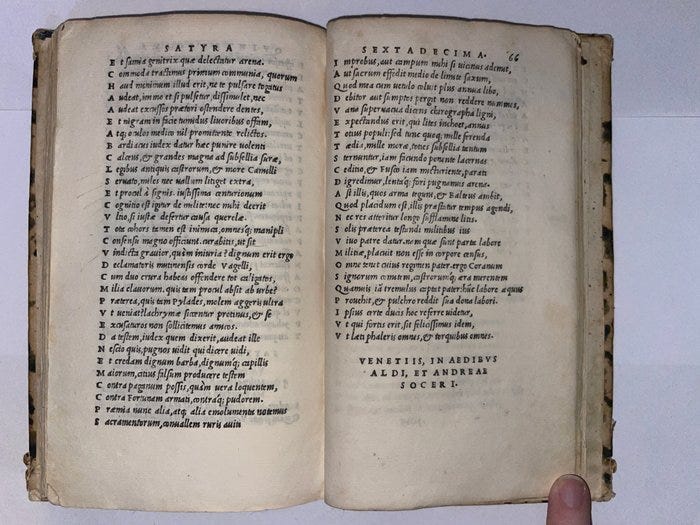 SATYRA
Et samia genitrix quæ delectatur arena.
Commoda tractemus primum communia, quorum
Haud minimum illud erit, ne te pulsare togatus
Audeat, immo et si pulsetur, dissimulet, nec
Audeat excussos prætori ostendere dentes,
Et nigram in facie tumidis liuoribus offam,
Atq; oculos medico nil promittente relictos.
Bardiacus iudex datur hæc punire uolenti
Calceus, & grandes magna ad subsellia suræ,
Legibus antiquis castrorum, & more Camilli
Seruato, miles nec uallum litiget extra,
Et procul à signis. iustissima centurionum
Cognitio est igitur de milite: nec mihi deerit
Vltio, si iustæ defertur causa querelæ.
Tota cohors tamen est inimica, omnesq; manipli
Consensu magno officiunt. curabitis, ut sit
Vindicta grauior, quàm iniuria? dignum erit ergo
Declamatoris mutinensis corde Vagelli,
Cum duo crura habeas offendere tot caligatos,
Milia clauorum. quis tam procul absit ab urbe?
Præterea, quis tam Pylades, molem aggeris ultra
Vt ueniat? lachrymæ siccentur protinus, & se
Excusaturos non sollicitemus amicos.
Da testem, iudex quem dixerit, audeat ille
Nescio quis, pugnos uidit qui dicere uidi,
Et credam dignum barba, dignumq; capillis
Maiorum, citius falsum producere testem
Contra paganum possis, quàm uera loquentem,
Contra Fortunam armati, contraq; pudorem.
Præmia nunc alia, atq; alia emolumenta notemus
Sacramentorum, conuallem ruris auiti
SEXTADECIMA. 66
Improbus, aut campum mihi si uicinus ademit,
Aut sacrum effodit medio de limite saxum,
Quod mea cum uetulo coluit puls annua libo,
Debitor aut sumptos pergit non reddere nummos,
Vana superuacui dicens chirographa ligni,
Expectandus erit, qui lites inchoet, annus
Totius populi: sed tunc quoq; mille ferenda
Tædia, mille moræ, toties subsellia tantum
Sternuntur, iam facundo ponente lacernas
Ceditio, & Fusco iam micturiente, parati
Digredimur, lentaq; fori pugnamus arena.
Ast illis, quos arma tegunt, & Balteus ambit,
Quod placidum est, illis præstatur tempus agendi,
Nec res atteritur longo sufflamine litis.
Solis præterea testandi militibus ius
Viuo patre datur. nam quæ sunt parte labore
Militiæ, placuit non esse in corpore census,
Omne tenet cuius regimen pater. ergo Coranum
Signorum comitem, castrorumq; æra merentem
Quamuis iã tremulus captat pater: hũc labore æquus
Prouehit, & pulchro reddit sua dona labori.
Ipsius certe ducis hoc referre uidetur,
Vt qui fortis erit, sit felicissimus idem,
Vt læti phaleris omnes, & torquibus omnes.
VENETIIS, IN AEDIBVS
ALDI, ET ANDREAE
SOCERI.